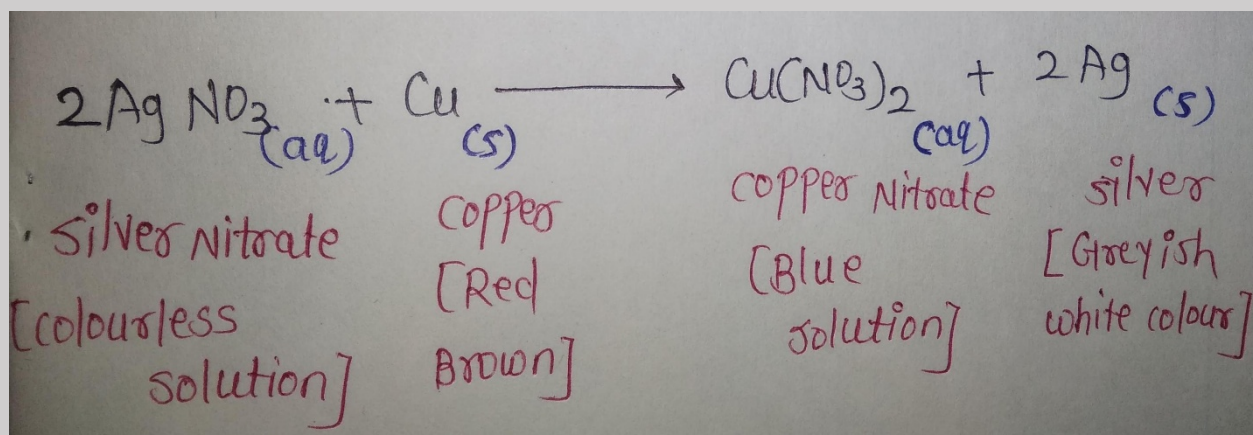 2 Ag NO3 (aq) + Cu (s) ⟶ Cu(NO3)2 (aq) + 2 Ag (s)
Silver Nitrate
[colourless
solution]
Copper
[Red
Brown]
copper Nitrate
[Blue
solution]
silver
[Greyish
white colour]